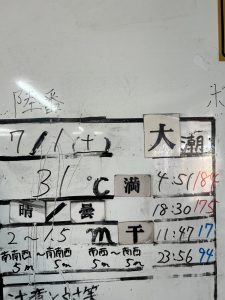 陸番
7/1(土) 大潮
31℃ 満 4:51 184
晴/曇 18:30 175
2~1.5m 干 11:47 17
南南西~南南西 南西~南西 23:56 94
5m 5m 5m 5m